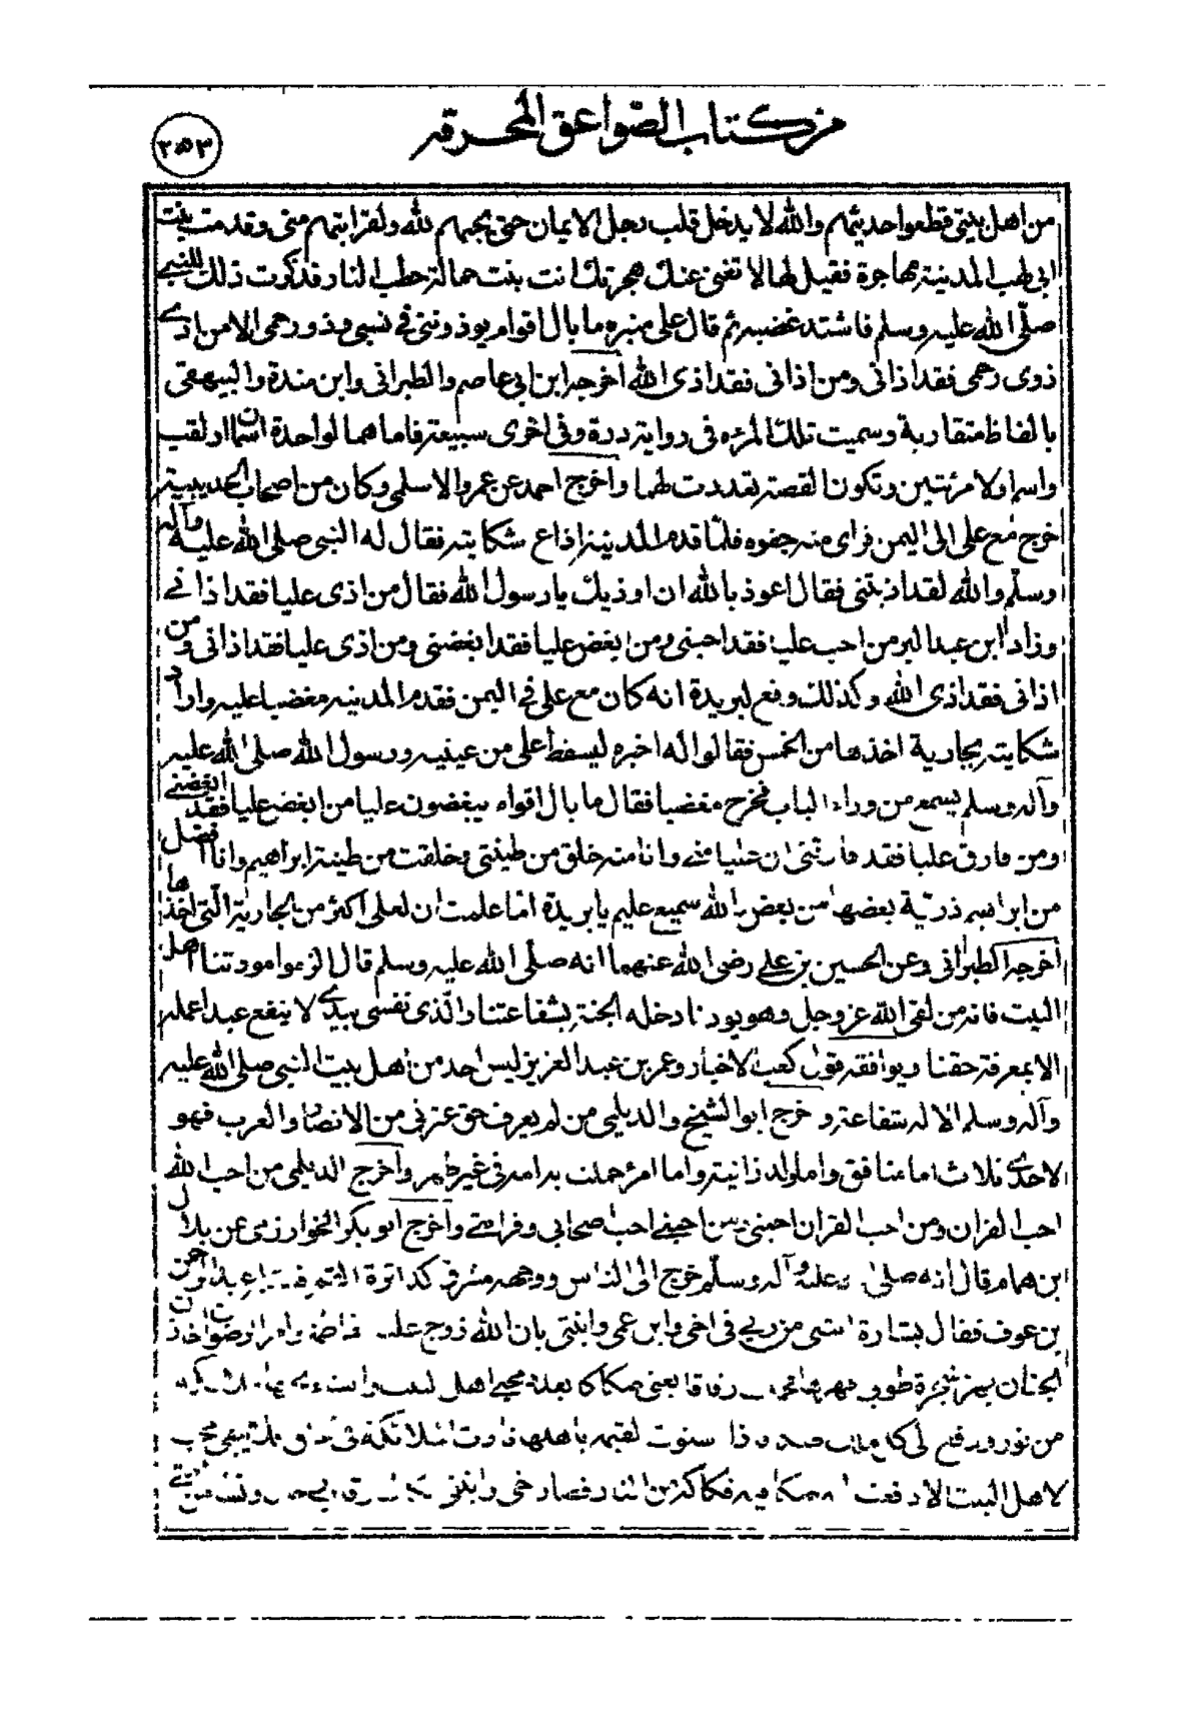 من كتاب الصواعق المحرقه
٢٥٣
من اهل بيتي قطعوا حديثهم والله لا يدخل قلب رجل الايمان حتى يحبهم لله ولقرابتهم منى وقدمت بنت
ابى لهب المدينة مهاجرة فقيل لها لا تغنى عنك هجرتك انت بنت حمالة حطب النار فذكرت ذلك للنبي
صلى الله عليه وسلم فاشتد غضبه ثم قال على منبره ما بال اقوام يوذونني في نسبي وذورحمى الا من اذى
ذوى رحمى فقد اذانى ومن اذانى فقد اذى الله اخرجه ابن ابى عاصم والطبرانى وابن مندة والبيهقى
بالفاظ متقاربة وسميت تلك المرءه فى رواية درة وفى اخرى سبيعة فاما هما لواحدة اسمان او لقب
واسم اولامرئتين وتكون القصة تعددت لهما واخرج احمد عن عمرو الاسلمى وكان من اصحاب الحديبية
خرج مع على الى اليمن فراى منه جفوه فلما قدم المدينة اذاع شكايته فقال له النبى صلى الله عليه وآله
وسلم والله لقد اذيتنى فقال اعوذ بالله ان اوذيك يا رسول الله فقال من اذى عليا فقد اذانى
وزاد ابن عبد البر من احب عليا فقد احبنى ومن ابغض عليا فقد ابغضنى ومن اذى عليا فقد اذانى ومن
اذانى فقد اذى الله وكذلك وقع لبريدة انه كان مع على فى اليمن فقدم المدينه مغضبا عليه واراد
شكايته بجارية اخذها من الخمس فقالوا له اخبره ليسقط على من عينيه ورسول الله صلى الله عليه
وآله وسلم يسمع من وراء الباب فخرج مغضبا فقال ما بال اقوام يبغضون عليا من ابغض عليا فقد ابغضنى
ومن فارق عليا فقد فارقنى ان عليا منى وانا منه خلق من طينتى وخلقت من طينة ابراهيم وانا افضل
من ابراهيم ذرية بعضها من بعض والله سميع عليم يا بريدة اما علمت ان لعلى اكثر من الجارية التى اخذها
اخرجه الطبرانى وعن الحسين بن على رضى الله عنهما انه صلى الله عليه وسلم قال الزموا مودتنا اهل
البيت فانه من لقى الله عز وجل وهو يودنا دخله الجنة بشفاعتنا والذى نفسى بيده لا ينفع عبدا عمله
الا بمعرفة حقنا ويوافقه قول كعب الاخبار وعمر بن عبد العزيز ليس احد من اهل بيت النبى صلى الله عليه
وآله وسلم الا له شفاعة و خرج ابو الشيخ والديلمى من لم يعرف حق عترتى من الانصار والعرب فهو
لاحدى ثلاث اما منافق واما ولد زانية واما امرء حملت به امه فى غير طهر واخرج الديلمى من احب الله
احب القران ومن احب القران احبنى ومن احبنى احب صحابى وقرابتى واخرج ابو بكر الخوارزمى عن بلال
ابن همام قال انه صلى عليه وآله وسلم خرج الى الناس ووجهه مشرق كدائرة القمر عبد الرحمن
بن عوف فقال بشارة اتتنى من ربى فى اخى وابن عمى وابنتى بان الله زوج علي فاطمة وامر رضوان خازن
الجنان شجرة طوبى رقاقا يعنى صكاكا بعدد محبى اهل
من نور ودفع لى كل ملك القيمه باهلها نادت الملائكة فى
لاهل البيت الا دفعت من النار فصار اخى وابنتى